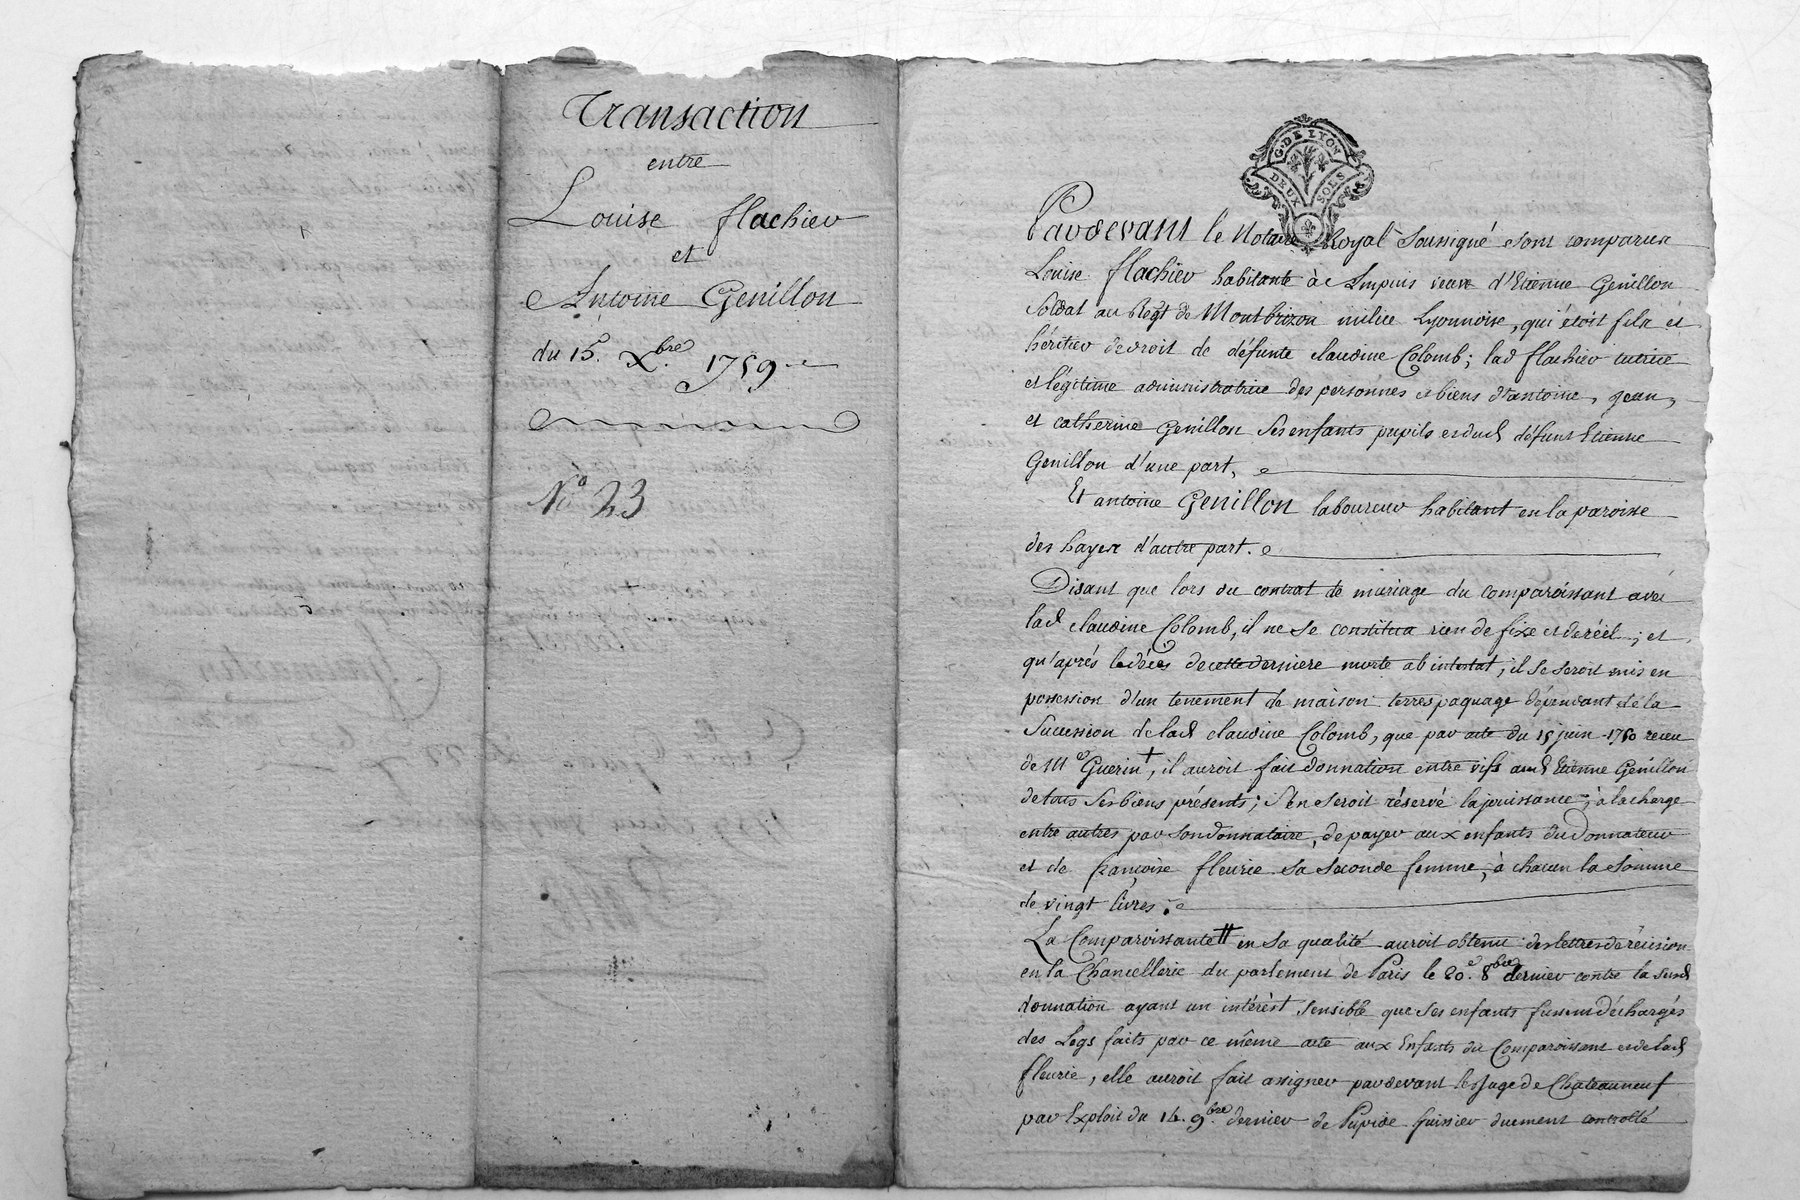 Transaction
entre
Louise flachier
et
Antoine Genillon
du 15. Xbre 1759.
No 23
G. DE LYON
DEUX SOLS
Pardevant le Notaire Royal Soussigné sont comparus
Louise flachier habitante à Ampuis veuve d'Etienne Genillon
Soldat au Regt de Montbrizon milice Lyonnoise, qui étoit fils et
héritier de droit de défunte claudine Colomb; lad flachier tutrice
et légitime administratrice des personnes et biens d'antoine, jean,
et catherine Genillon ses enfants pupils et dud défunt Etienne
Genillon d'une part,
Et antoine Genillon laboureur habitant en la paroisse
des hayes d'autre part.
Disant que lors du contrat de mariage du comparoissant avec
lad claudine Colomb, il ne se constitua rien de fixe et de réel; et
qu'après le décès de cette derniere morte ab intestat, il se seroit mis en
possession d'un tenement de maison terres paquage dépendant de la
Succession de lad claudine Colomb, que par acte du 15 juin 1750 receu
de Me Guerin +, il auroit fait donnation entre vifs aud Etienne Genillon
de tous ses biens présents; s'en seroit réservé la jouissance, à la charge
entre autres par son donnataire, de payer aux enfants du donnateur
et de françoise fleurie sa seconde femme, à chacun la somme
de vingt livres.
La Comparoissante # en sa qualité auroit obtenu des lettres de récision
en la Chancellerie du parlement de Paris le 20e. 8bre dernier contre la susd
donnation ayant un intérêst sensible que ses enfants fussent déchargés
des Legs faits par ce même acte aux Enfants du Comparoissant et de lad
fleurie, elle auroit fait assigner pardevant le Juge de Chateauneuf
par Exploit du 14. 9bre. dernier de Pupide huissier duement controllé